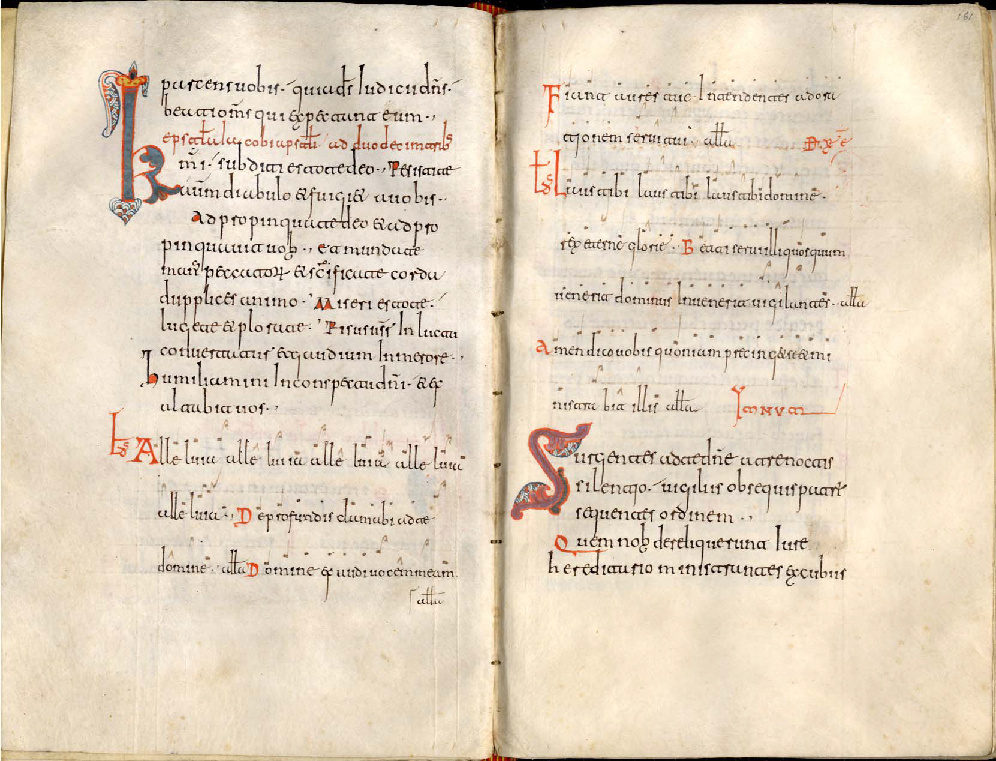 parcens uobis · quia ds̄ Iudicii dn̄s ·
beati om̄s qui expectant eum ·
eps̄tła iacobi apsłi ad duodecim tribs̄
Kr̄mi · subditi estote deo · Resistite
autem diabulo & fugi& a uobis ·
Adpropinquate deo & adpro
pinquauit uob · emundate
man' peccator & sc̄ificate corda
dupplices animo · Miseri estote ·
lugete & plorate · Risus urs̄ In luctu
conuertatur & gaudium In merore ·
humiliamini In conspectu dn̄i · & ex
altabit uos ·
Alleluia alleluia alleluia alleluia
alleluia · De profundis clamabi ad te
domine · ałła Domine exaudi uocem meam
ałła
161
Fiant aures tue Intendentes ad ora
tionem serui tui ałła
Laus tibi laus tibi laus tibi domine ·
rex eterne glorie · Beati serui illi quos quum
uenerit dominus Inuenerit uigilantes · ałła
Amen dico uobis quoniam precing& se & mi
nistrabit illis ałła Ymnum
Surgentes ad te dn̄e atre noctis
silentio · uigiliis obsequis patrū
sequentes ordinem ·
Quem nob dereliquerunt Iure
hereditario ministrantes excubiis